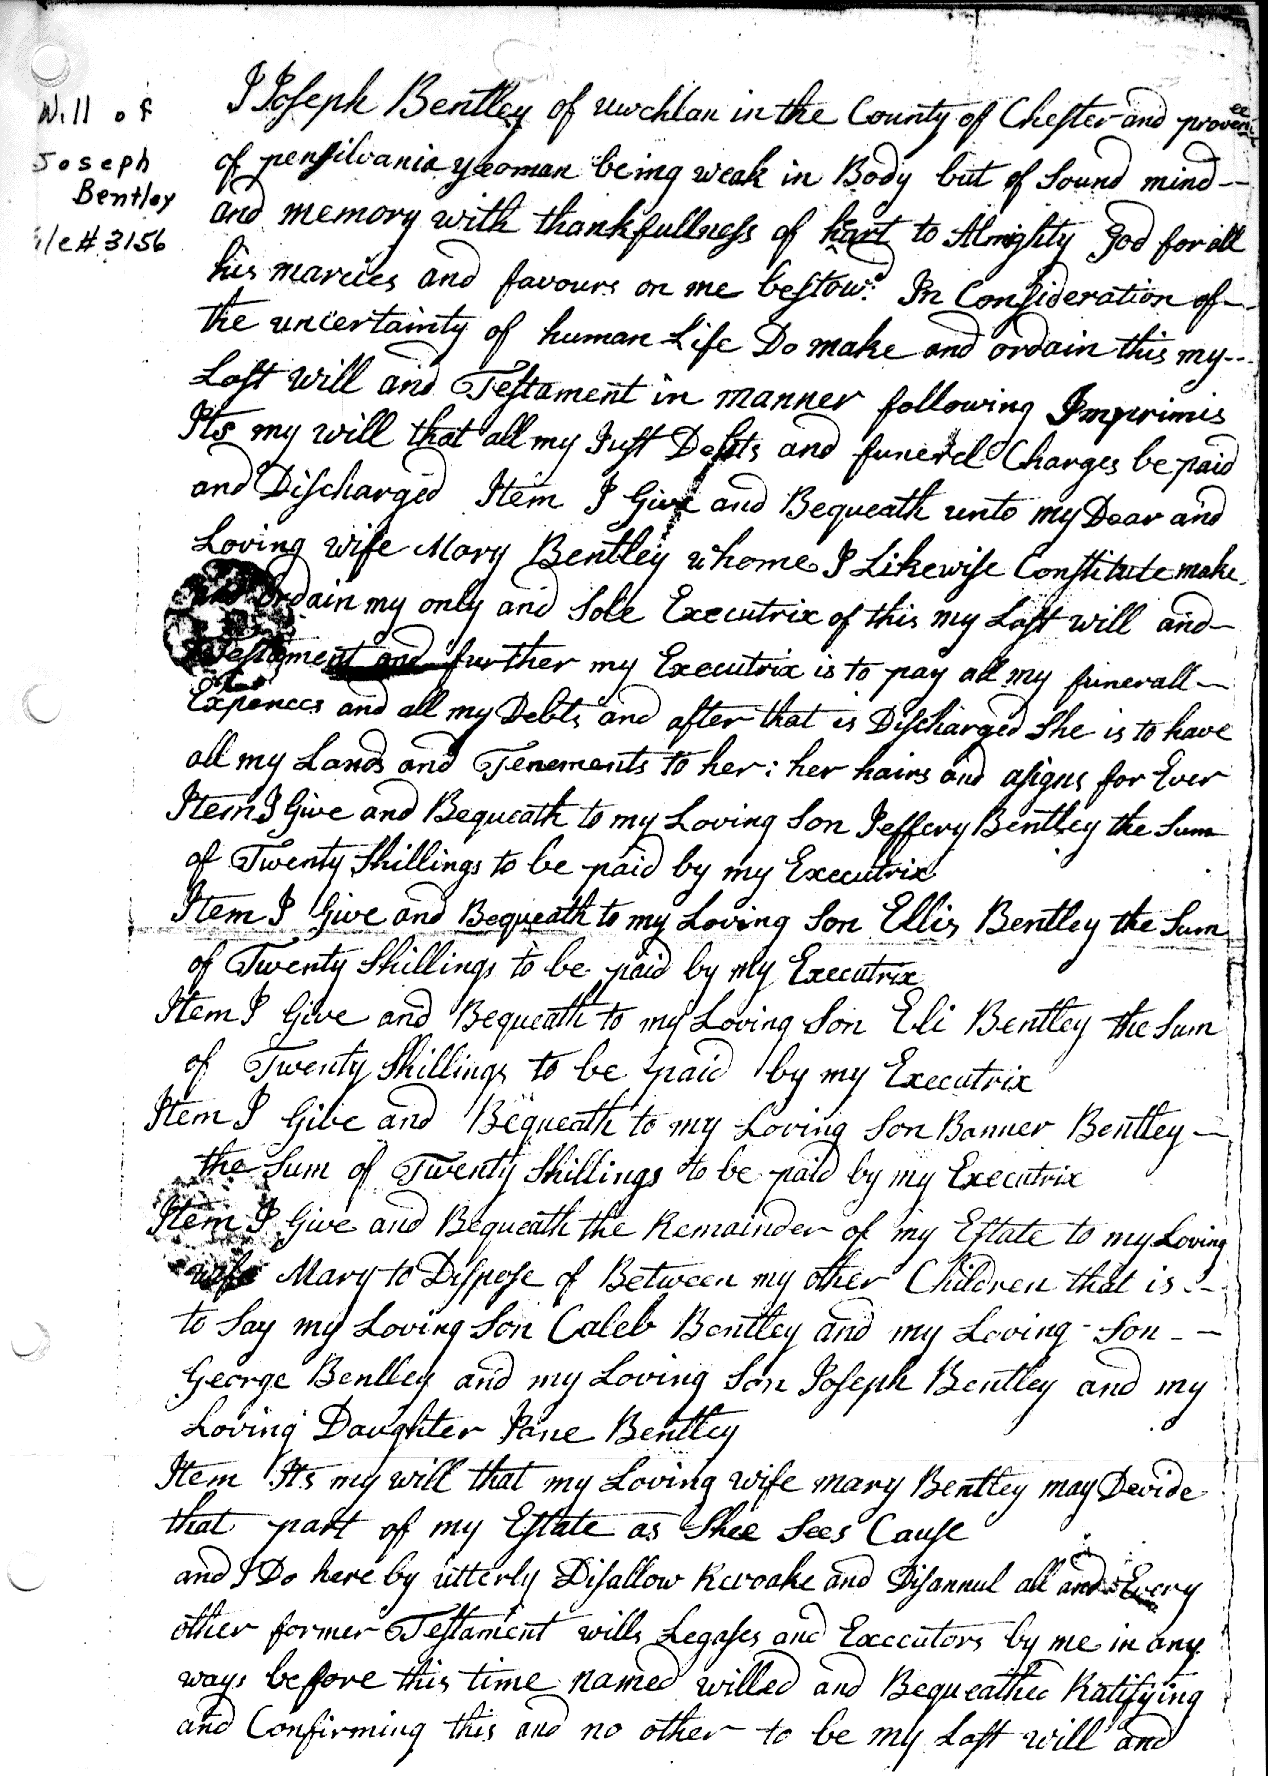 Will of
Joseph
Bentley
file # 3156
I Joseph Bentley of uwchlan in the County of Chester and provence
of pensilvania yeoman being weak in Body but of Sound mind—
and memory with thankfullness of hart to Almighty God for all
his marcies and favours on me bestow.d In Consideration of—
the uncertainty of human Life Do make and ordain this my--
Last will and Testament in manner following Imprimis
Its my will that all my Just Debts and funerel Charges be paid
and Discharged Item I Give and Bequeath unto my Dear and
Loving wife Mary Bentley whome I Likewise Constitute make
and ordain my only and Sole Executrix of this my Last will and—
Testament and further my Executrix is to pay all my funerall—
Expences and all my Debts and after that is Discharged She is to have
all my Lands and Tenements to her: her hairs and asigns for Ever
Item I Give and Bequeath to my Loving Son Jeffery Bentley the Sum
of Twenty Shillings to be paid by my Executrix
Item I Give and Bequeath to my Loving Son Ellis Bentley the Sum
of Twenty Shillings to be paid by my Executrix
Item I Give and Bequeath to my Loving Son Eli Bentley the Sum
of Twenty Shillings to be paid by my Executrix
Item I Give and Bequeath to my Loving Son Banner Bentley—
the Sum of Twenty Shillings to be paid by my Executrix
Item I Give and Bequeath the Remainder of my Estate to my Loving
wife Mary to Dispose of Between my other Children that is--
to Say my Loving Son Caleb Bentley and my Loving - Son--
George Bentley and my Loving Son Joseph Bentley and my
Loving Daughter Jane Bentley
Item Its my will that my Loving wife mary Bentley may Devide
that part of my Estate as Shee Sees Cause
and I Do here by utterly Disallow Revoake and Disannul all and Every
other former Testament wills Legases and Executors by me in any
ways before this time named willed and Bequeathed Ratifying
and Confirming this and no other to be my Last will and